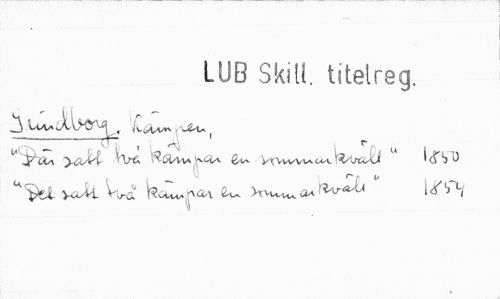 LUB Skill. titelreg.
Grindborg. Kämpen,
"Där satt två kämpar en sommarkväll" 1850
"Det satt två kämpar en sommarkväll" 1854